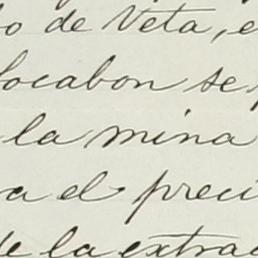 o de Veta, e
locabon se
la mina
a el preci
de la extrac